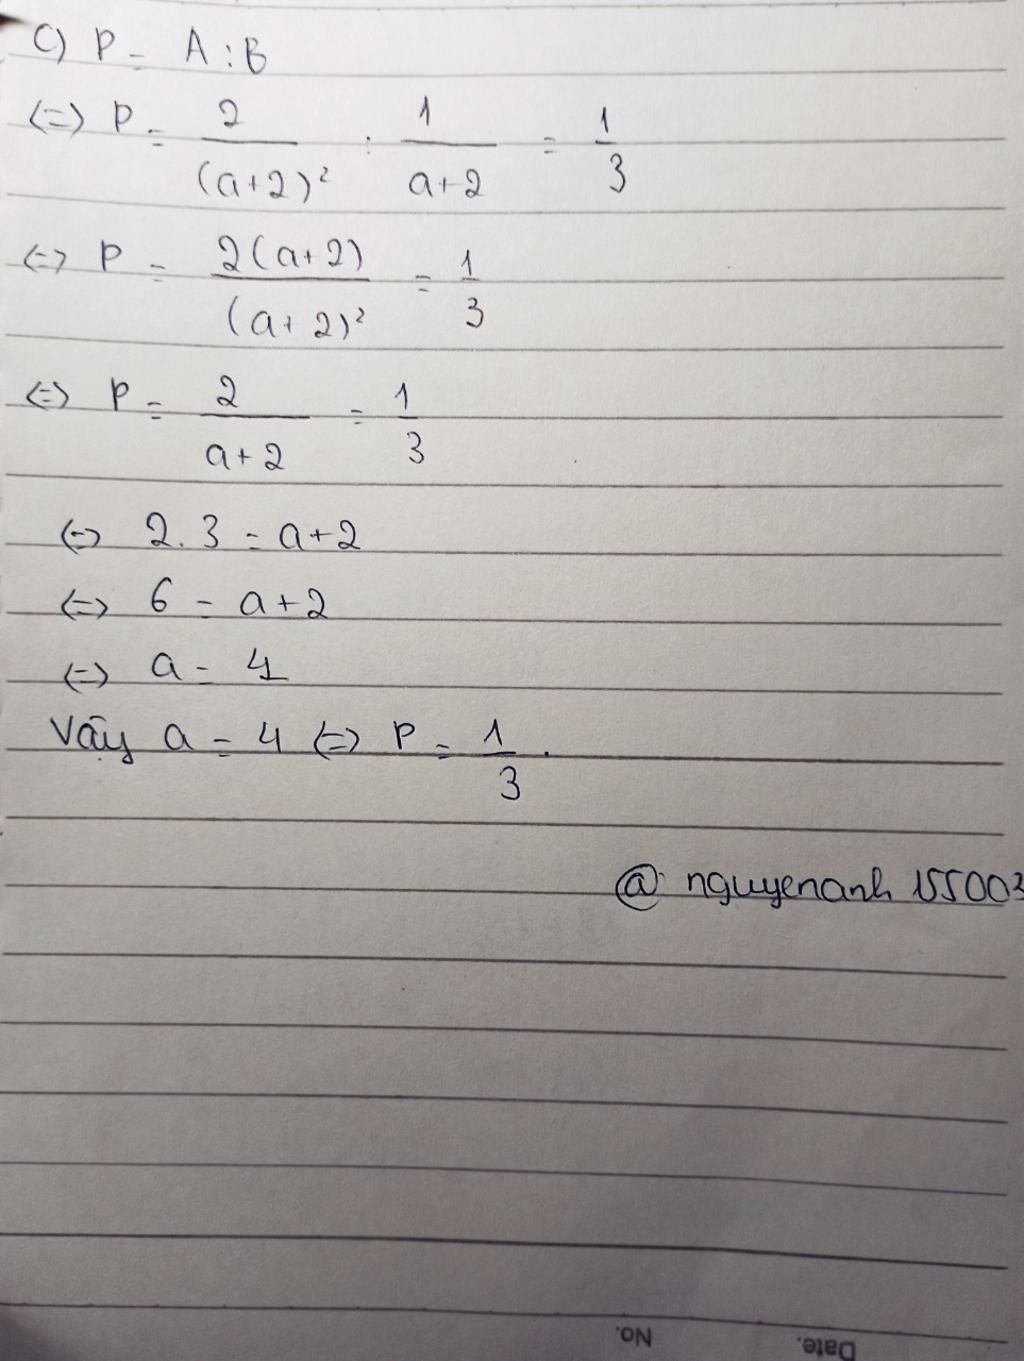 c) P = A : B
<=> P = 2/(a+2)² : 1/(a+2) = 1/3
<=> P = 2(a+2)/(a+2)² = 1/3
<=> P = 2/(a+2) = 1/3
<=> 2.3 = a+2
<=> 6 = a+2
<=> a = 4
Vậy a = 4 <=> P = 1/3.
@nguyenanh155003
No.
Date.